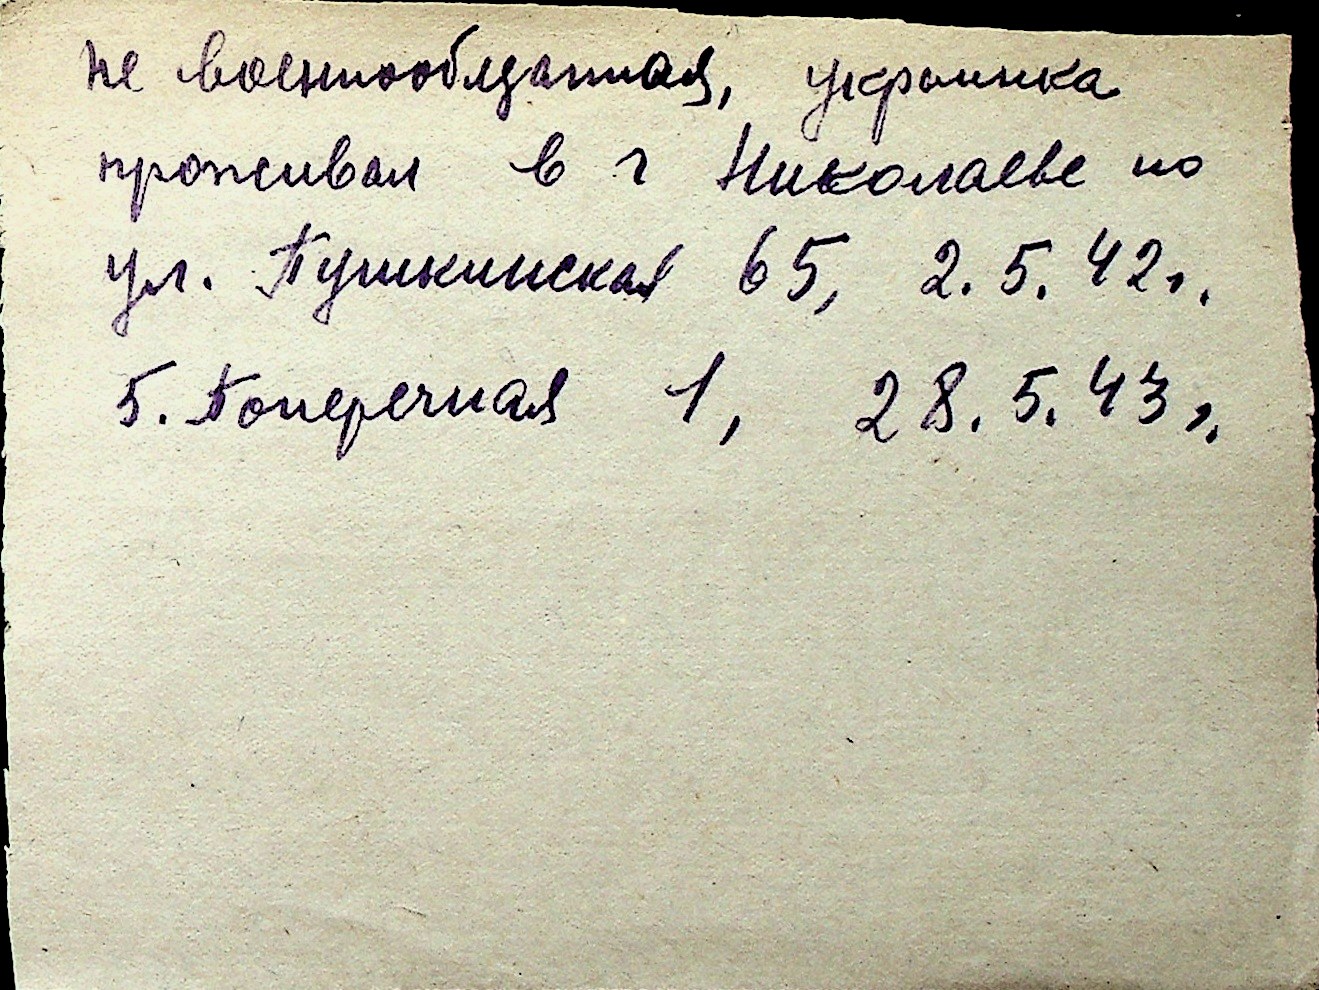 не военнообязанная, украинка
проживал в г Николаеве по
ул. Пушкинская 65, 2.5.42г.
5. Поперечная 1, 28.5.43г.